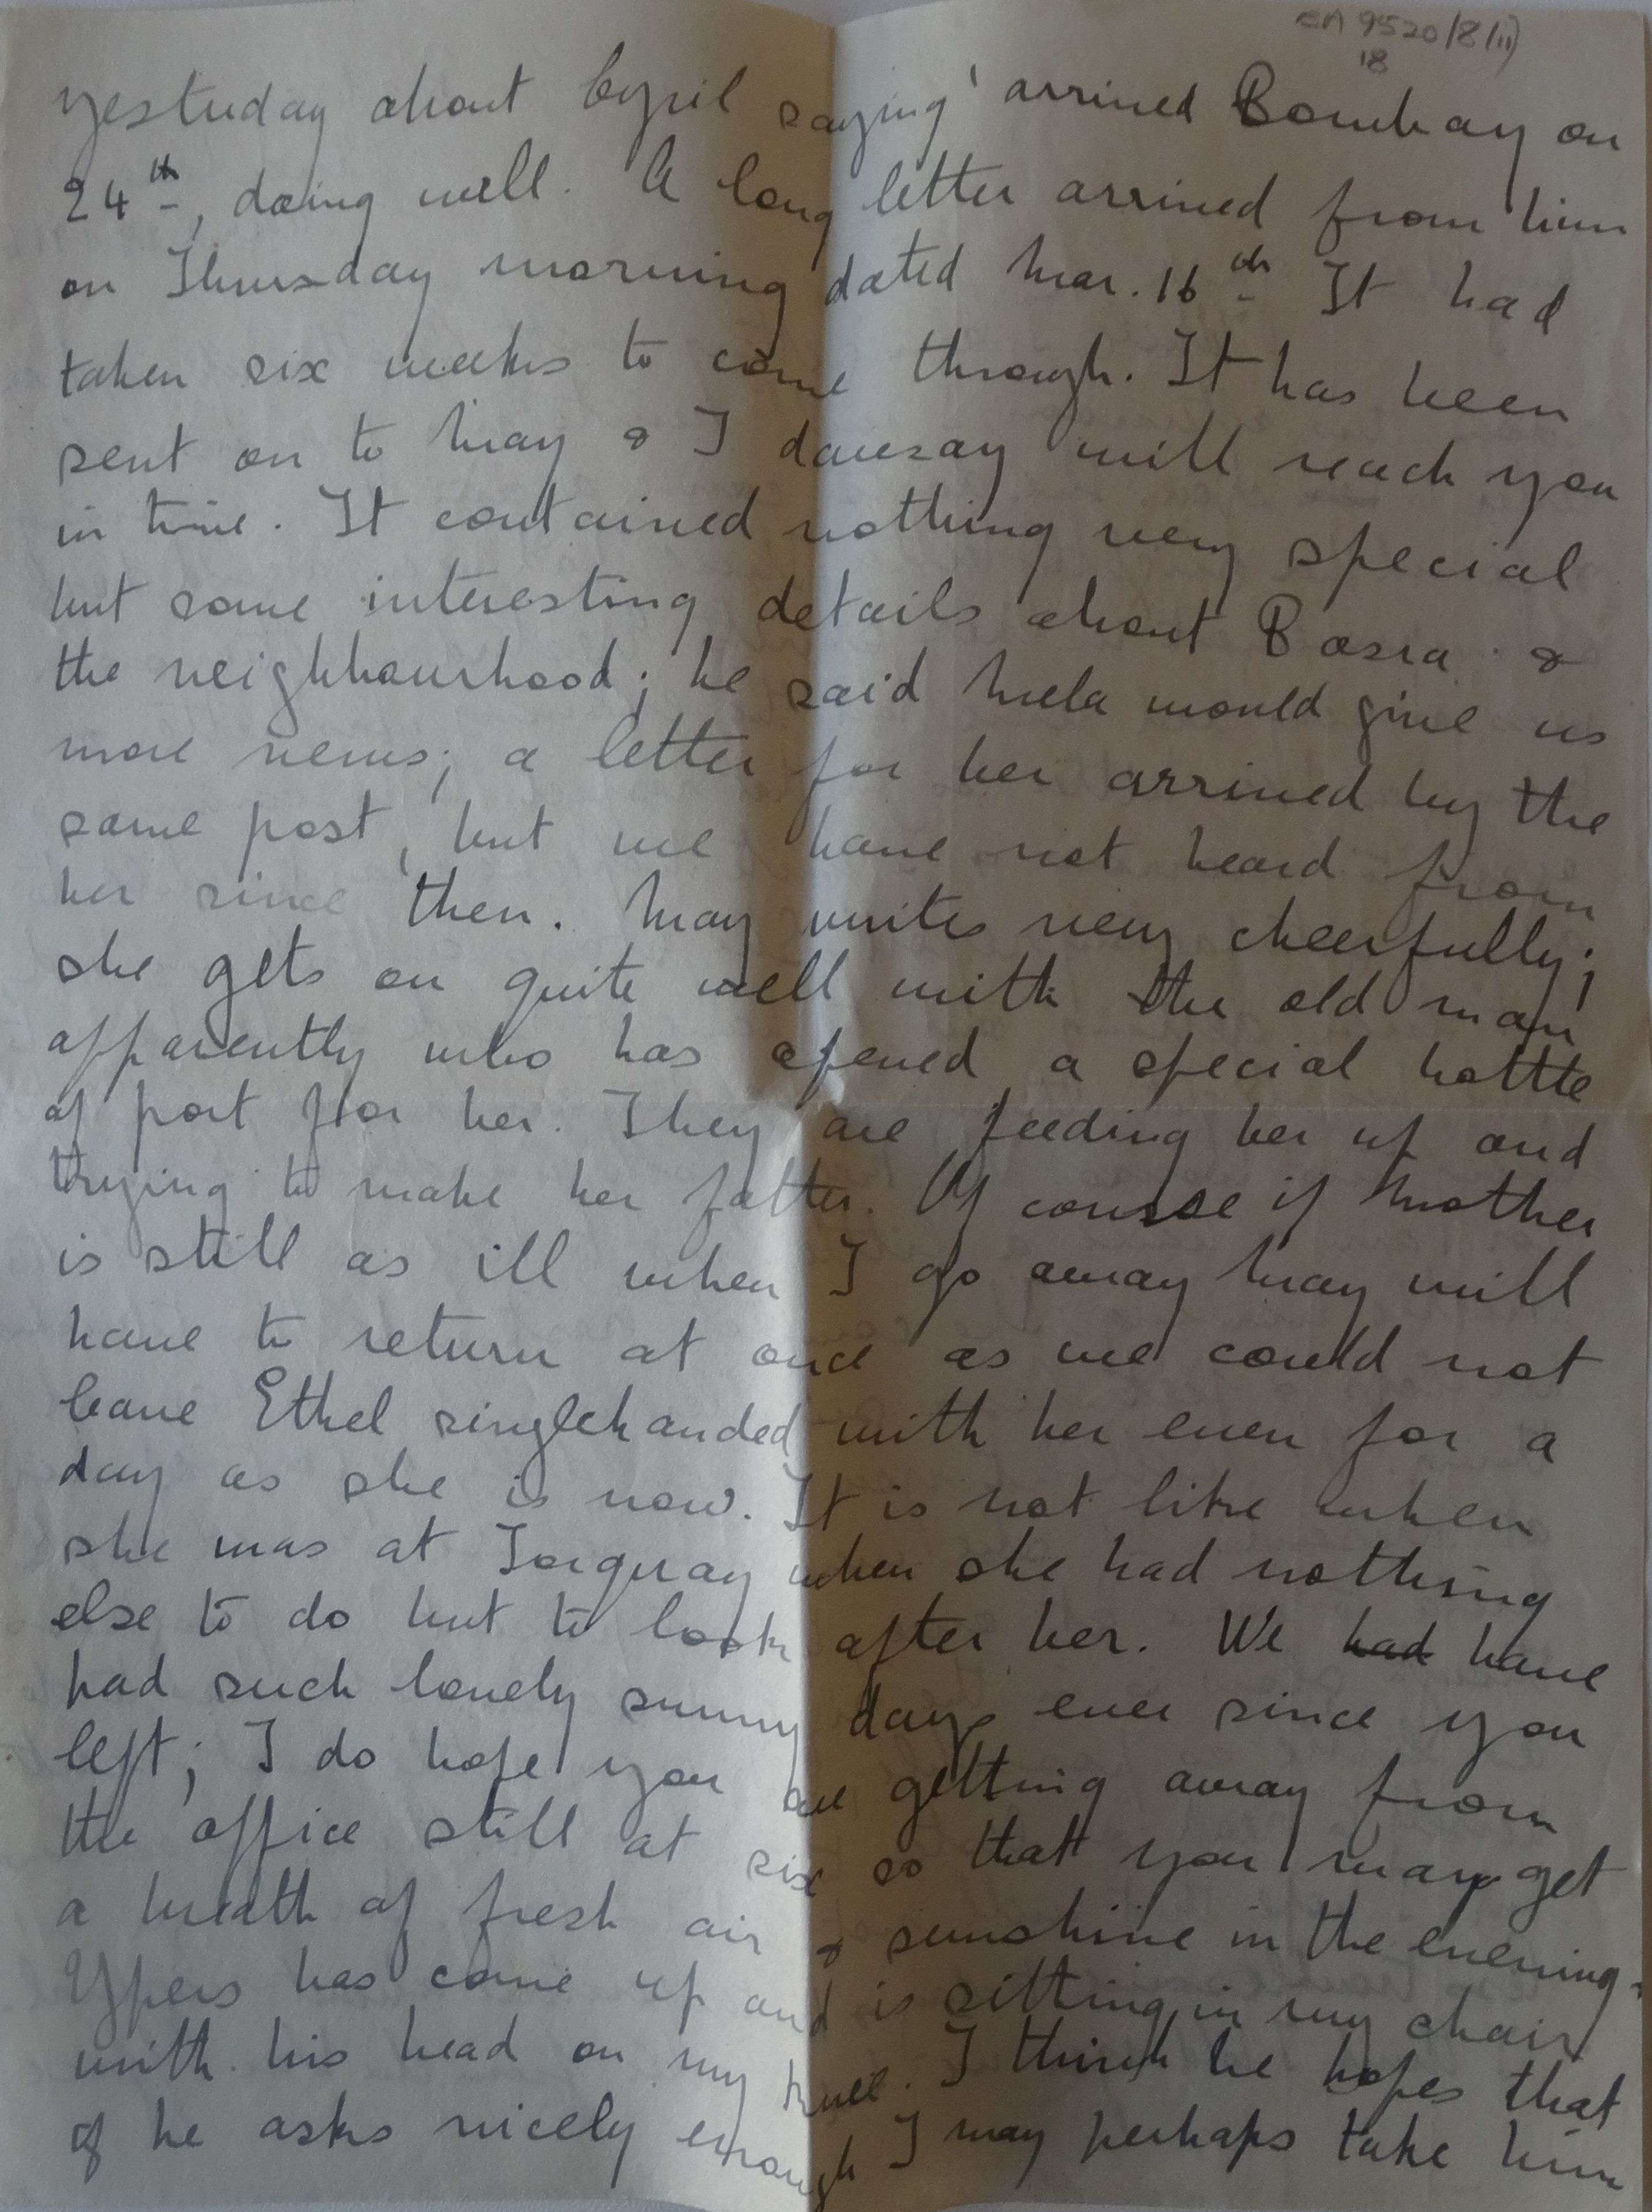 EA 9520/8/ii)
18
yesterday about Cyril saying 'arrived Bombay on
24th, doing well. A long letter arrived from him
on Thursday morning dated Mar. 16th It had
taken six weeks to come through. It has been
sent on to May & I daresay will reach you
in time. It contained nothing very special
but some interesting details about Basra &
the neighbourhood; he said Mela would give us
more news; a letter for her arrived by the
same post, but we have not heard from
her since then. May writes very cheerfully;
she gets on quite well with the old man
apparently who has opened a special bottle
of port for her. They are feeding her up and
trying to make her fatter. Of course if Mother
is still as ill when I go away May will
have to return at once as we could not
leave Ethel singlehanded with her even for a
day as she is now. It is not like when
she was at Torquay when she had nothing
else to do but to look after her. We had have
had such lovely sunny days ever since you
left; I do hope you are getting away from
the office still at six so that you may get
a breath of fresh air & sunshine in the evening.
Ypers has come up and is sitting in my chair
with his head on my knee. I think he hopes that
if he asks nicely enough I may perhaps take him